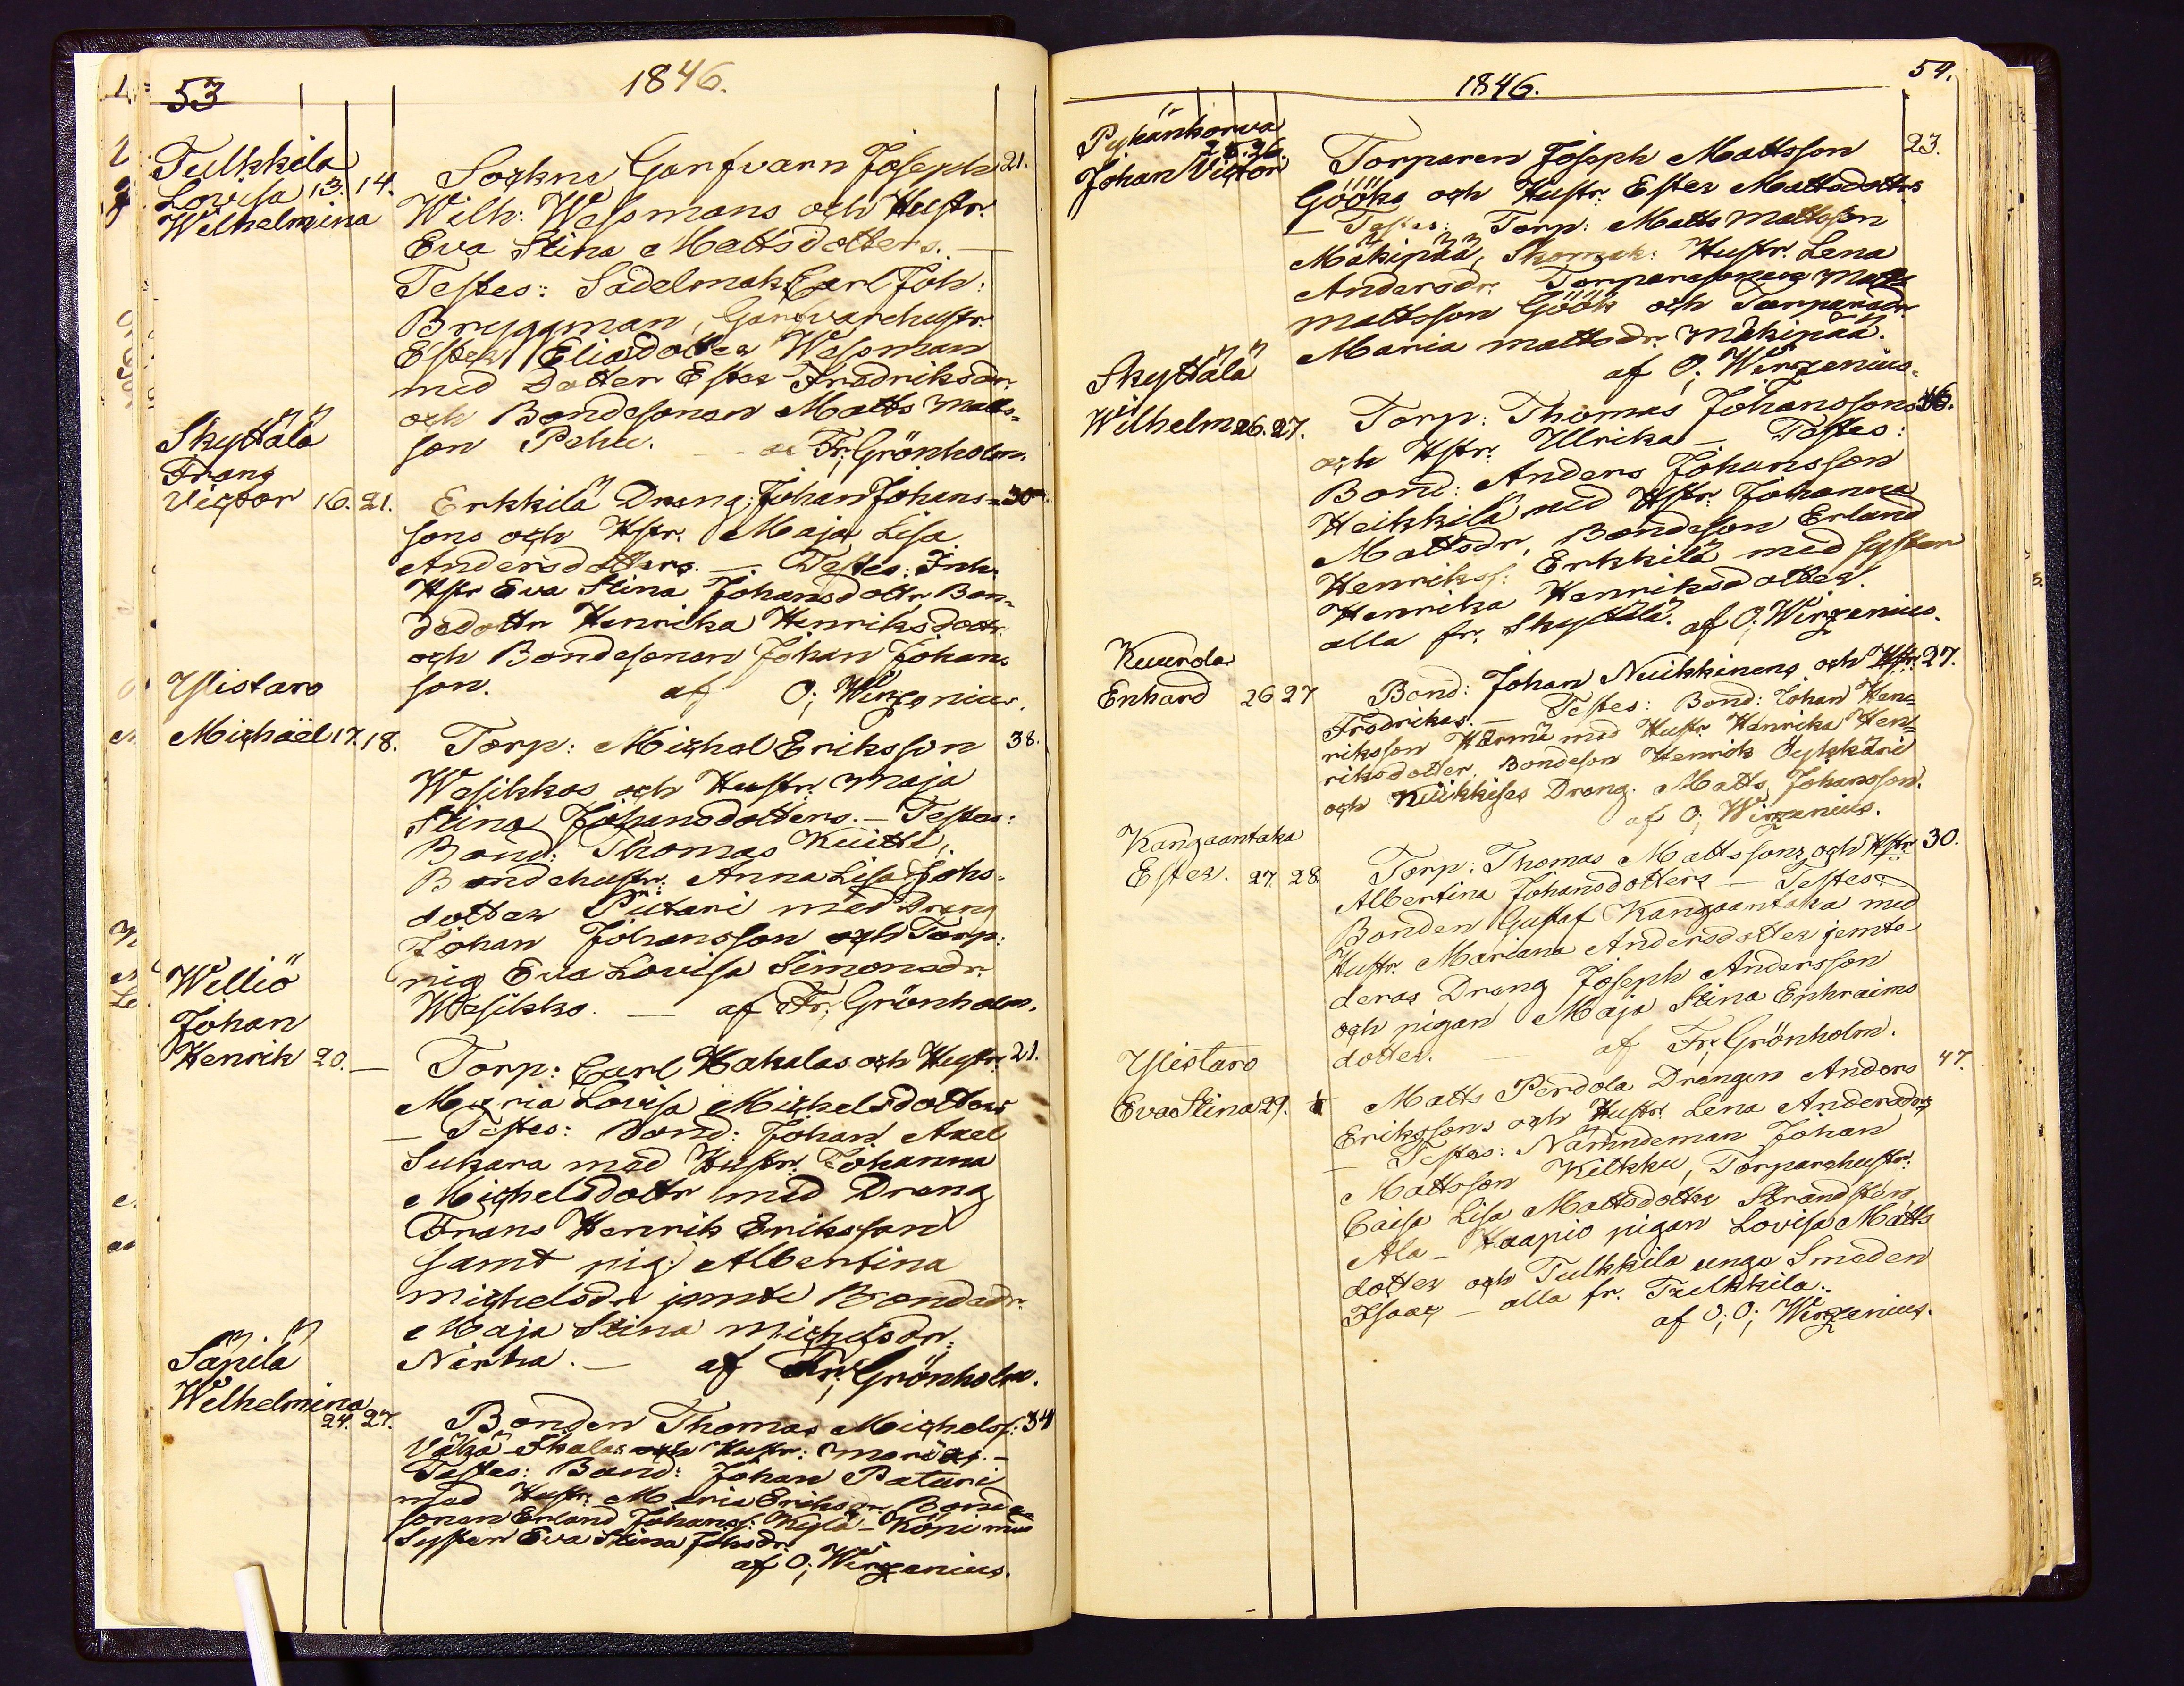 53
1846.
Tulkkila
Lovisa 13. 14.
Wilhelmina
Sockne Garfvarn Joseph 21.
Wilh: Wessmans och Hustr.
Eva Stina Mattsdotters. —
Testes: Sadelmak: Carl Joh:
Bryggman, Garfvarehustr.
Ester Eliasdotter Wessman
med Dotter Ester Fredriksdr.
och Bondesonen Matts Matts=
son Pehu. — af Fr; Grönholm.
Skyttälä
Frans
Victor 16. 21.
Erkkilä Dreng; Johan Johans= 30
sons och Hstr. Maja Lisa
Andersdotters. — Testes: Inh.
Hstr Eva Stina Johansdottr Bon=
dedottr Henrika Henriksdottr
och Bondesonen Johan Johans
son. af O; Wirzenius.
Ylistaro
Michäel 17. 18.
Torp: Michel Eriksson 38.
Wesikkos och Hustr. Maja
Stina Johansdotters. — Testes:
Bond: Thomas Küitti,
Bondehustr: Anna Lisa Johs-
dotter Piitari med Dreng
Johan Johansson och Torp:
pig Eva Lovisa Simonsdr.
Wesikko. — af Fr; Grönholm.
Williö
Johan
Henrik 20. —
Torp: Carl Hakalas och Hustr. 21.
Maria Lovisa Michelsdotters
— Testes: Bond: Johan Axel
Sukara med Hustr. Johanna
Michelsdottr med Dreng
Frans Henrik Eriksson
samt pig: Albertina
Michelsdr jemte Bondedr.
Maja Stina Michelsdr.
Nirha. — af Fr; Grönholm.
Säpilä
Wilhelmina
24. 27.
Bonden Thomas Michelss: 34
Vähä-Skalas och Hustr: Marias. —
Testes: Bond: Johan Paturi
med Hustr. Maria Eriksdr Bonde
sonen Erland Johanss: Kylä-Köpi med
Syster Eva Stina Johsdr.
af O; Wirzenius.
54.
1846.
Pyhänkorva
25. 26.
Johan Victor
Torparen Joseph Mattsson 23.
Gööks och Hustr. Ester Mattsdotters
— Testes: Torp: Matts Mattsson
Mäkipää, Skomak: Hustr. Lena
Andersdr. Torparesonen Matts
Mattsson Göök och Torparedr.
Maria Mattsdr. Mäkipää.
af O; Wirzenius.
Skyttälä
Wilhelm 26. 27.
Torp: Thomas Johanssons 36.
och Hstr. Ullrika — Testes:
Bond: Anders Johansson
Heikkilä med Hstr. Johanna
Mattsdr, Bondeson Erland
Henrikss: Erkkilä med syster
Henrika Henriksdotter.
alla fr. Skyttälä. af O; Wirzenius.
Kuurola
Enhard 26 27
Bond: Johan Nuikkinens och Hstr. 27.
Fredrikas. — Testes: Bond: Johan Hen=
riksson Härmä med Hustr Henrika Hen=
riksdotter, Bondeson Henrik Öykkäri
och Kuikkises Dreng. Matts Johansson.
af O; Wirzenius.
Kangaantaka
Ester. 27. 28.
Torp: Thomas Mattssons och Hstr 30.
Albertina Johansdotters — Testes:
Bonden Gustaf Kangaantaka med
Hustr. Mariana Andersdotter jemte
deras Dreng Joseph Andersson
och pigan Maja Stina Ephraims
dotter. — af Fr; Grönholm.
Ylistaro
Eva Stina 29.
Matts Perdola Drengen Anders 47.
Erikssons och Hustr. Lena Andersdrs
— Testes: Nämndeman Johan
Mattsson Kilkku, Torparehustr:
Caisa Lisa Mattsdotter Strandstén
Ala-Haapio pigan Lovisa Matts
dotter och Tulkkila unge Smeden
Isaac — alla fr. Tulkkila.
af O; O; Wirzenius.